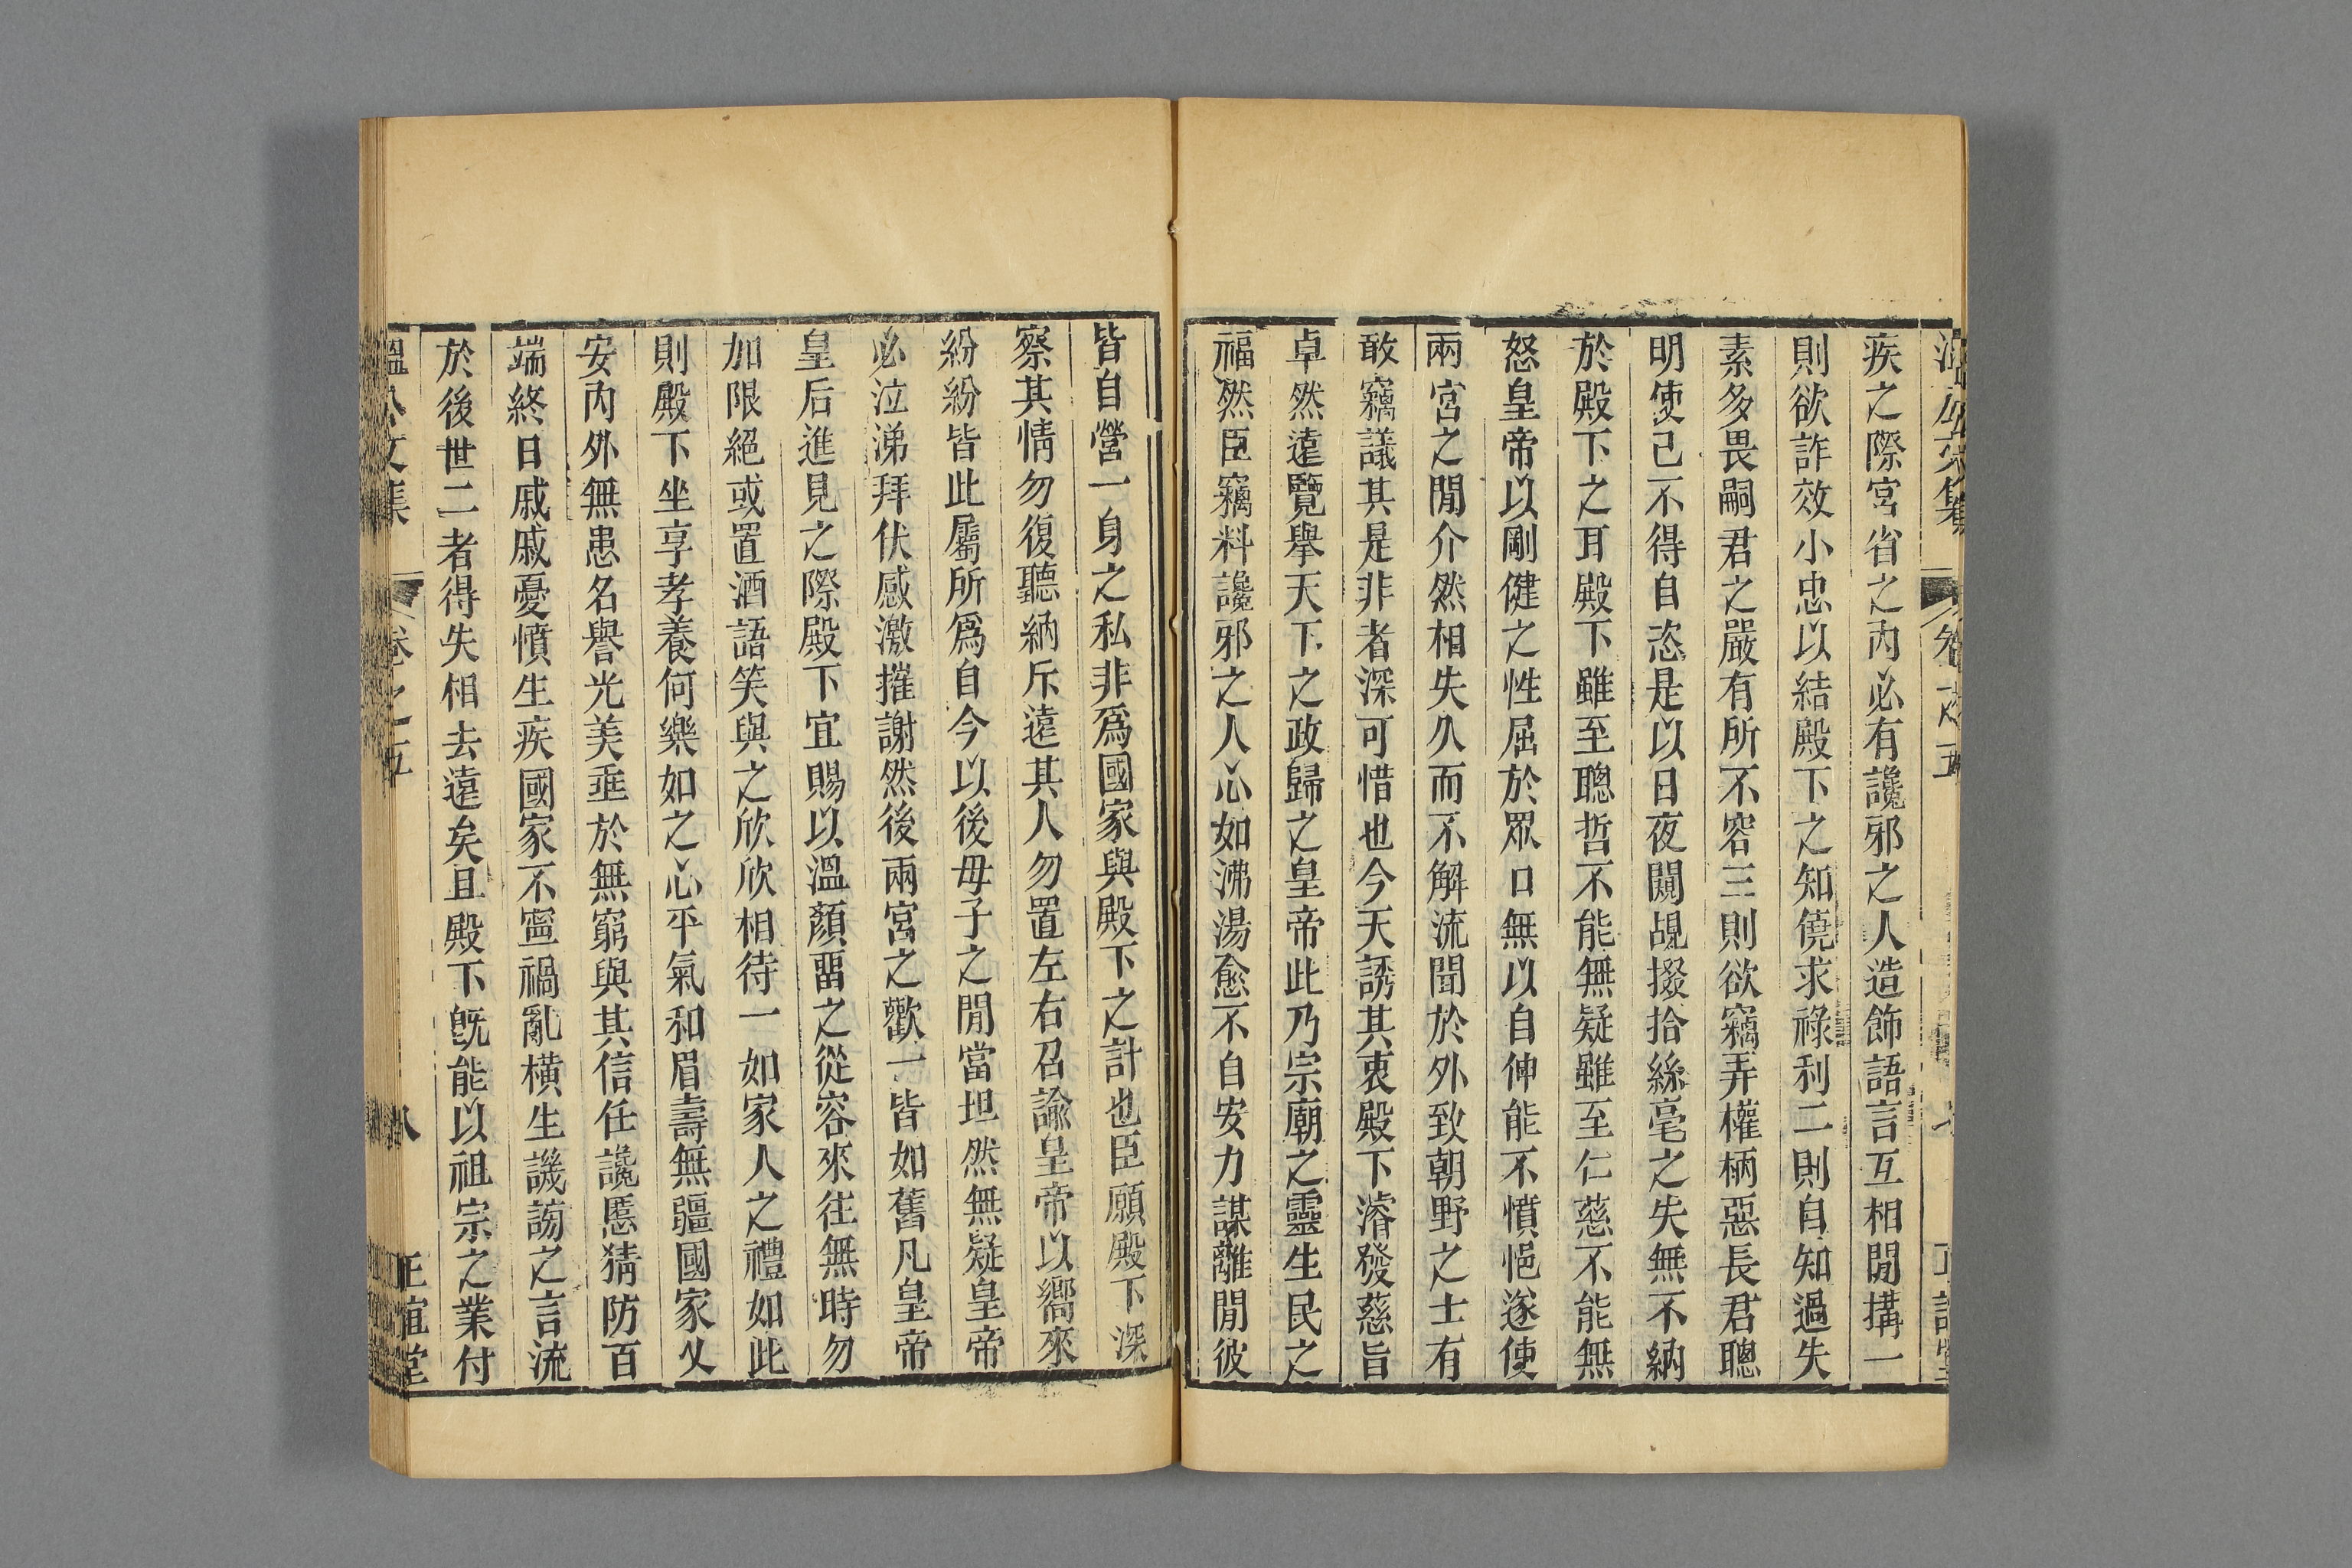 疾之際宮省之內必有讒邪之人造飾語言互相閒搆一
則欲詐效小忠以結殿下之知僥求祿利二則自知過失
素多畏嗣君之嚴有所不容三則欲竊弄權柄惡長君聰
明使己不得自恣是以日夜闚覘掇拾絲毫之失無不納
於殿下之耳殿下雖至聰哲不能無疑雖至仁慈不能無
怒皇帝以剛健之性屈於眾口無以自伸能不憤悒遂使
兩宮之閒介然相失久而不解流聞於外致朝野之士有
敢竊議其是非者深可惜也今天誘其衷殿下濬發慈旨
卓然遠覽舉天下之政歸之皇帝此乃宗廟之靈生民之
福然臣竊料讒邪之人心如沸湯愈不自安力謀離閒彼
皆自營一身之私非爲國家與殿下之計也臣願殿下深
察其情勿復聽納斥遠其人勿置左右召諭皇帝以嚮來
紛紛皆此屬所爲自今以後母子之閒當坦然無疑皇帝
必泣涕拜伏感激摧謝然後兩宮之歡一皆如舊凡皇帝
皇后進見之際殿下宜賜以溫顏畱之從容來往無時勿
加限絕或置酒語笑與之欣欣相待一如家人之禮如此
則殿下坐享孝養何樂如之心平氣和眉壽無疆國家乂
安內外無患名譽光美垂於無窮與其信任讒慝猜防百
端終日戚戚憂憤生疾國家不寧禍亂橫生譏謗之言流
於後世二者得失相去遠矣且殿下旣能以祖宗之業付
溫公文集 卷之五 八 正誼堂